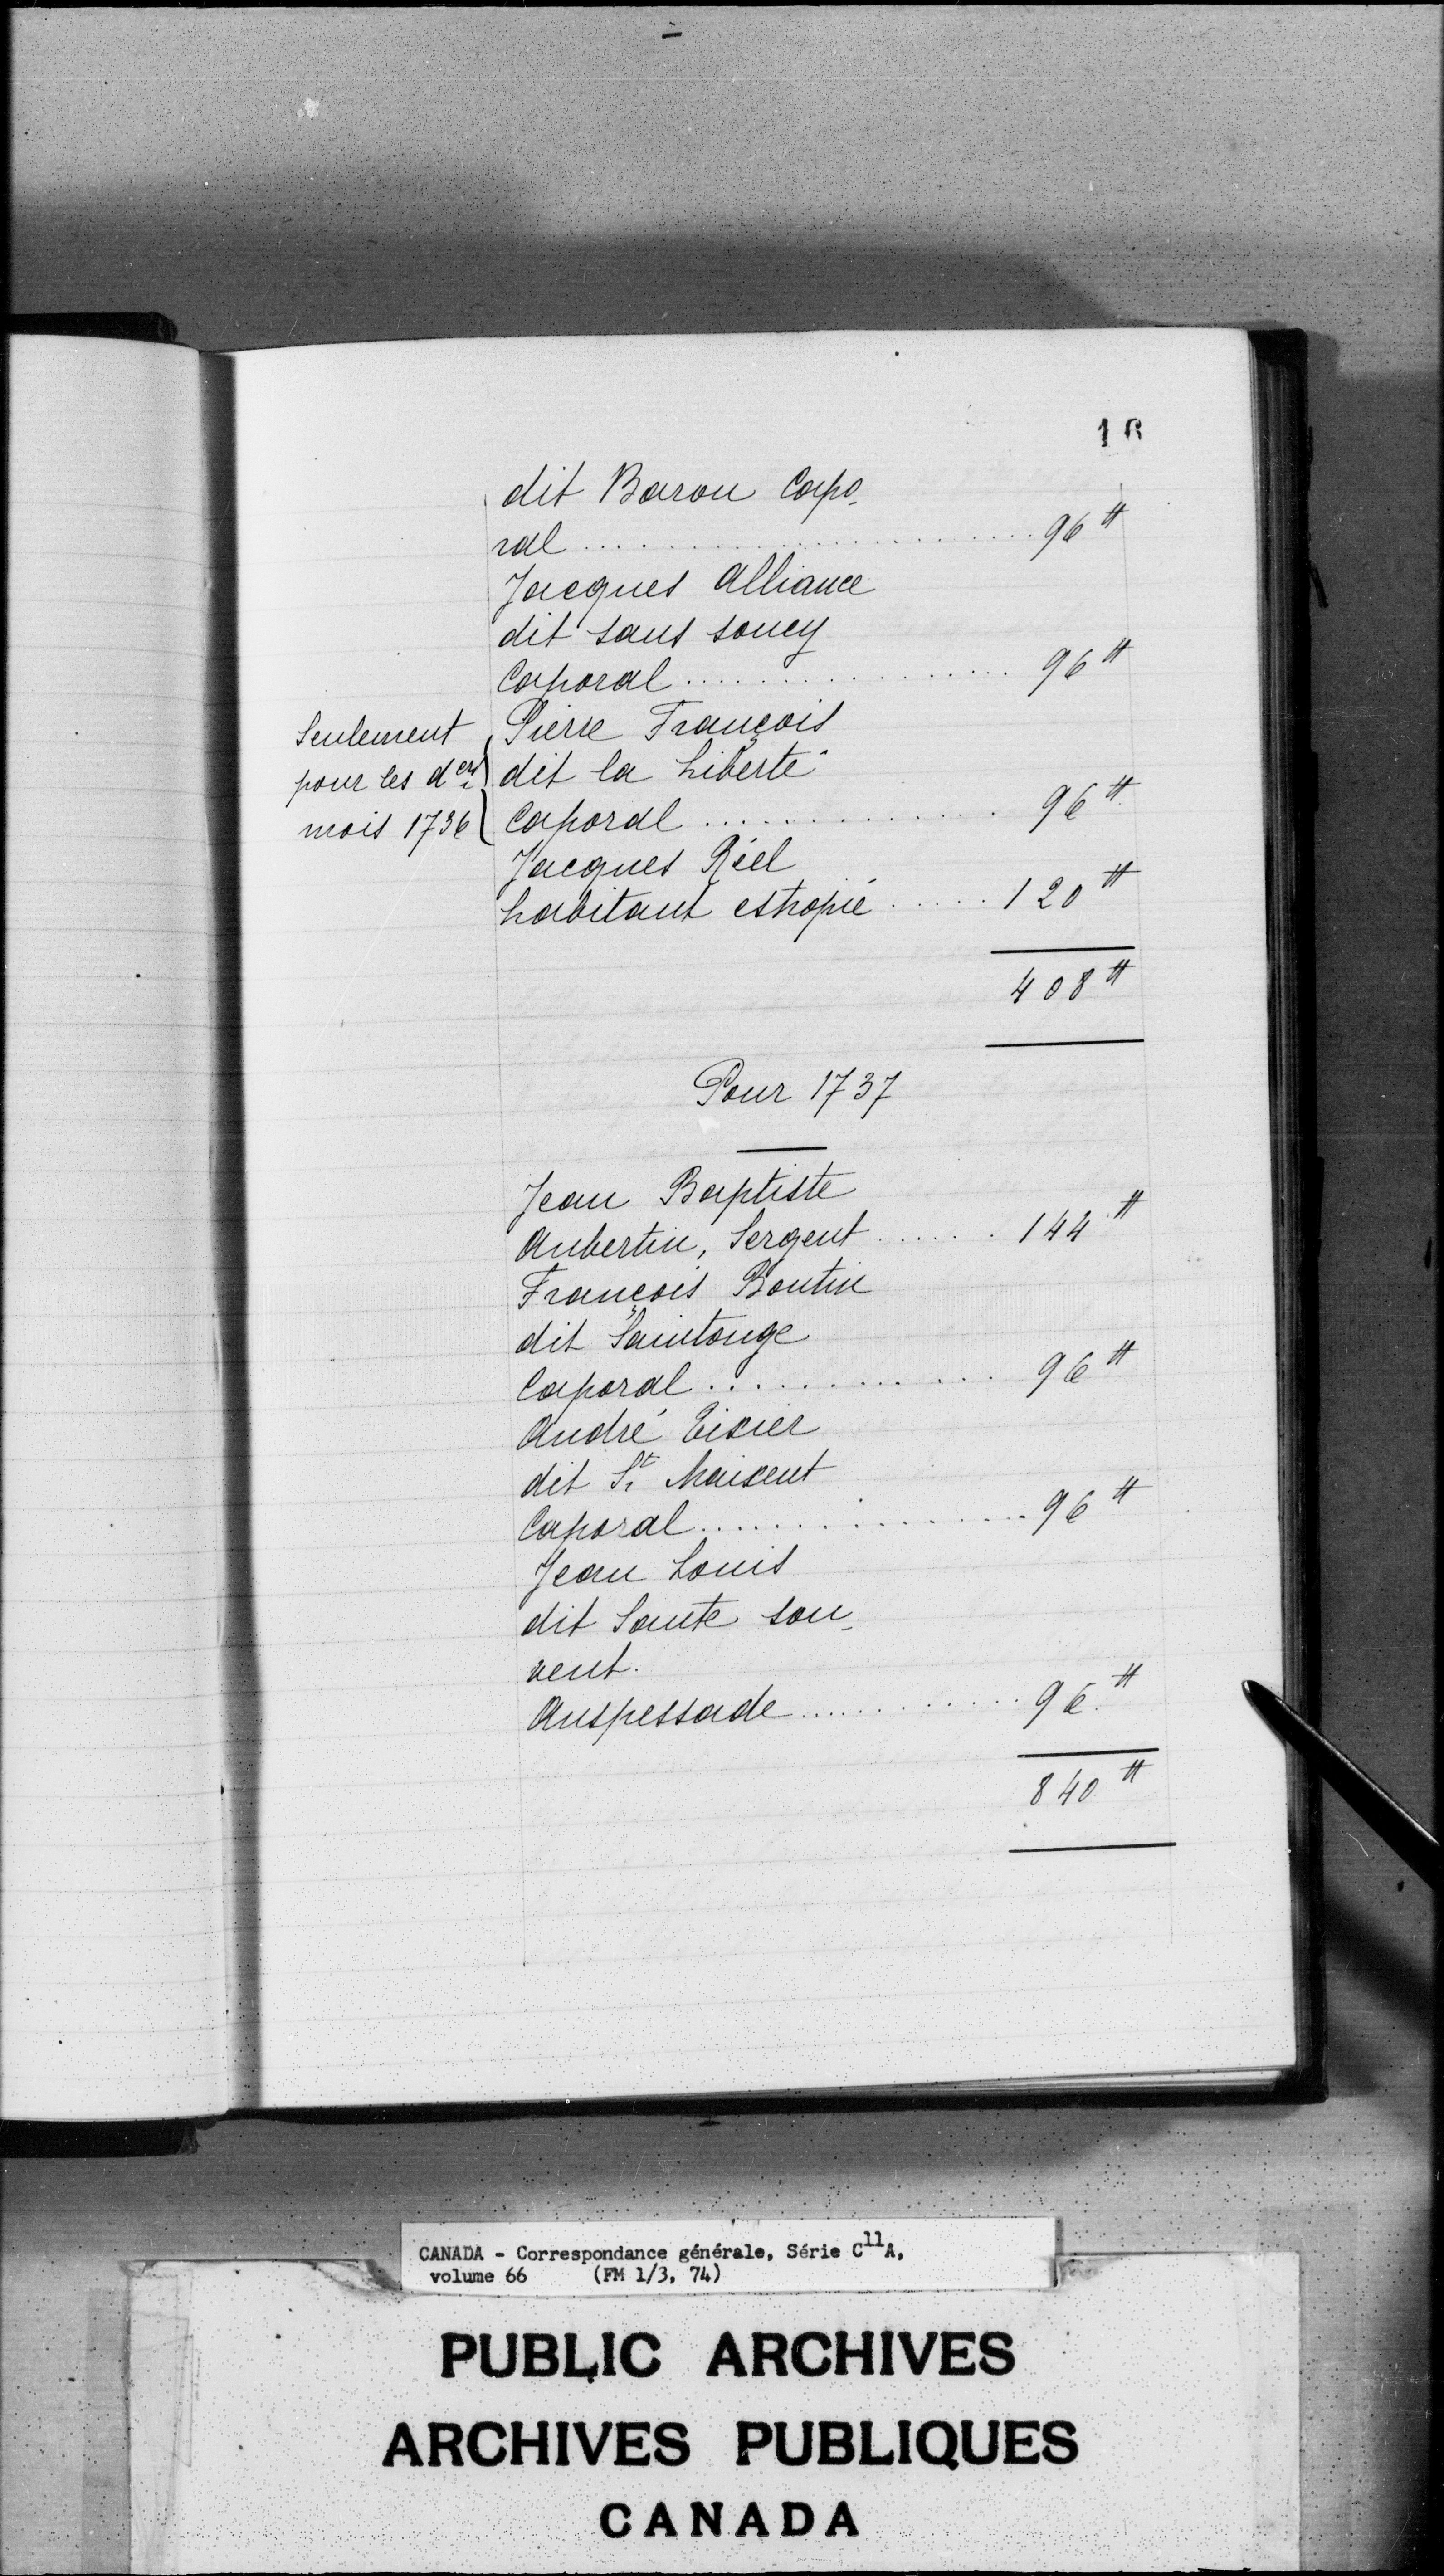 16
dit Baron Capo-
ral ........................ 96 ₶
Jacques Alliance
dit sans soucy
Caporal ................. 96 ₶
Seulement
pour les d.ers
mois 1736
Pierre François
dit la Liberté
Caporal .............. 96 ₶
Jacques Réel
habitant estropié ..... 120 ₶
408 ₶
Pour 1737
Jean Baptiste
Aubertin, Sergent ...... 144 ₶
François Boutin
dit Saintonge
Caporal ............. 96 ₶
André Tixier
dit St. Maixent
Caporal ................ 96 ₶
Jean Louis
dit Saute sou-
vent.
Anspessade ............ 96 ₶
840 ₶
CANADA - Correspondance générale, Série C11A,
volume 66 (FM 1/3, 74)
PUBLIC ARCHIVES
ARCHIVES PUBLIQUES
CANADA